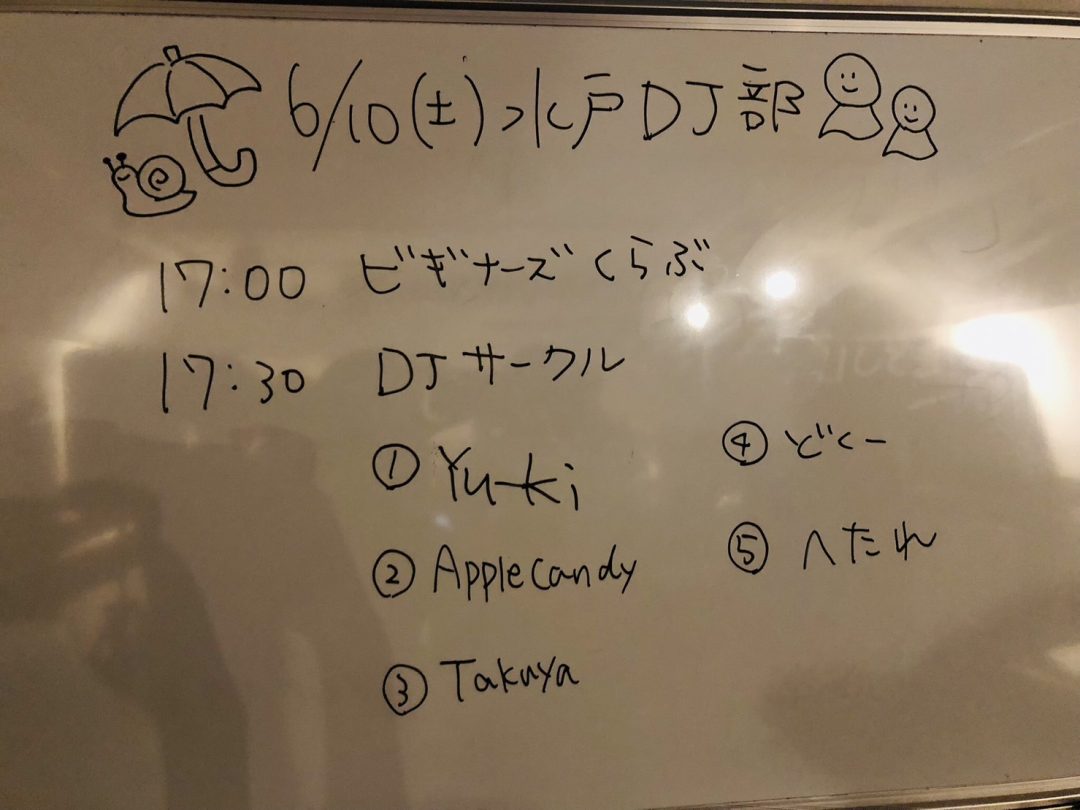 6/10(土)水戸DJ部
17:00 ビギナーズくらぶ
17:30 DJサークル
① Yu-ki
② Applecandy
③ Takuya
④ どくー
⑤ へたれ